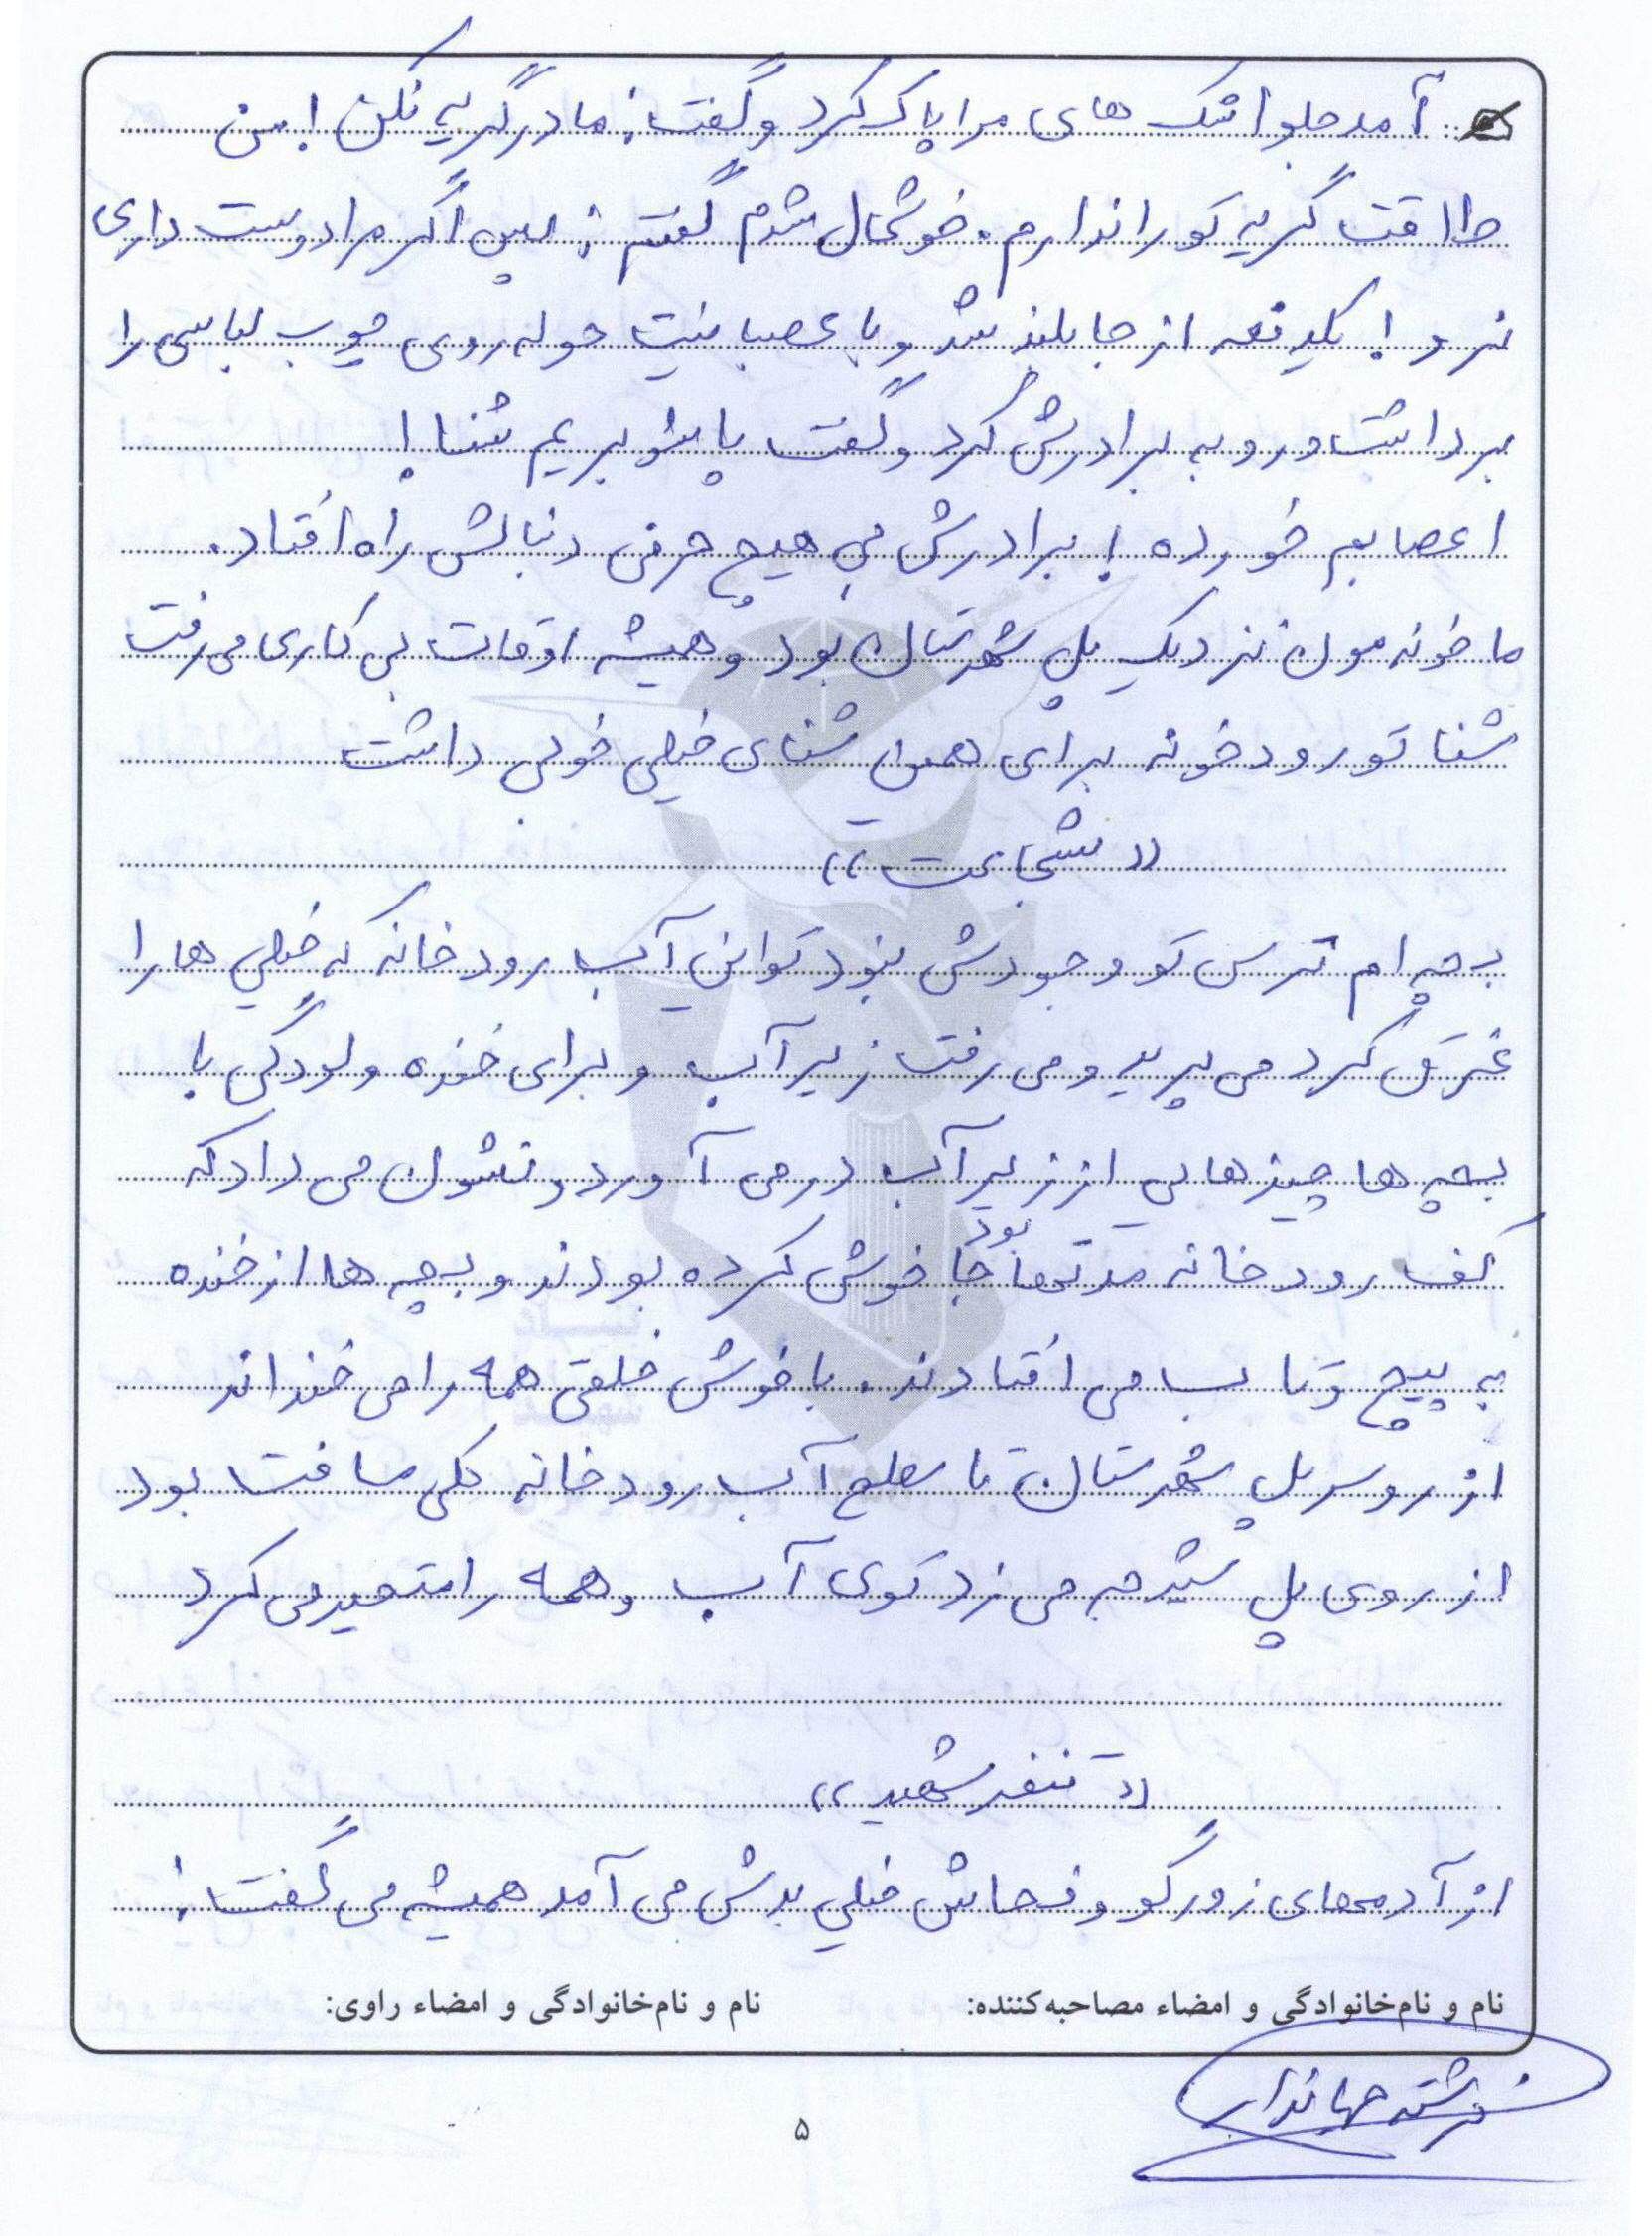 آمد جلو اشک های مرا پاک کرد و گفت: مادر گریه نکن! من
طاقت گریه تو را ندارم. خوشحال شدم گفتم: پس اگر مرا دوست داری
نرو! یکدفعه از جا بلند شد و با عصبانیت حوله روی چوب لباسی را
برداشت و رو به برادرش کرد و گفت پاشو بریم شنا!
اعصابم خورده! برادرش بی هیچ حرفی دنبالش راه افتاد.
ما خونه مون نزدیک پل شهرستان بود و همیشه اوقات بی کاری می رفت
شنا تو رودخونه برای همین شنای خیلی خوبی داشت
«شجاعت»
بچه ام ترس تو وجودش نبود تو این آب رودخانه که خیلی ها را
غرق کرد می پرید و می رفت زیر آب و برای خنده و لودگی با
بچه ها چیزهایی از زیر آب در می آورد و نشون می داد که
کف رودخانه مدتها جا خوش کرده بودند و بچه ها از خنده
بود
به پیچ و تاب می افتادند. با خوش خلقی همه را می خنداند
از رو سر پل شهرستان تا سطح آب رودخانه کلی مسافت بود
از روی پل شیرجه می زد توی آب و همه را متحیر می کرد
«تنفر شهید»
از آدمهای زورگو و فحاش خیلی بدش می آمد همیشه می گفت:
نام و نام‌خانوادگی و امضاء مصاحبه‌کننده: نام و نام‌خانوادگی و امضاء راوی:
فرشته جهاندار
۵